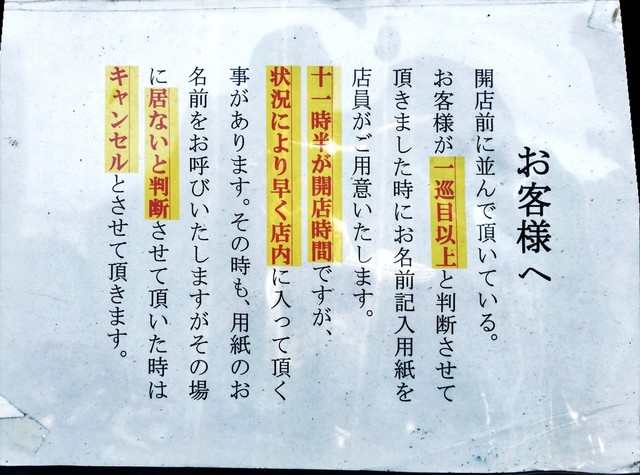 お客様へ
開店前に並んで頂いている。
お客様が一巡目以上と判断させて
頂きました時にお名前記入用紙を
店員がご用意いたします。
十一時半が開店時間ですが、
状況により早く店内に入って頂く
事があります。その時も、用紙のお
名前をお呼びいたしますがその場
に居ないと判断させて頂いた時は
キャンセルとさせて頂きます。